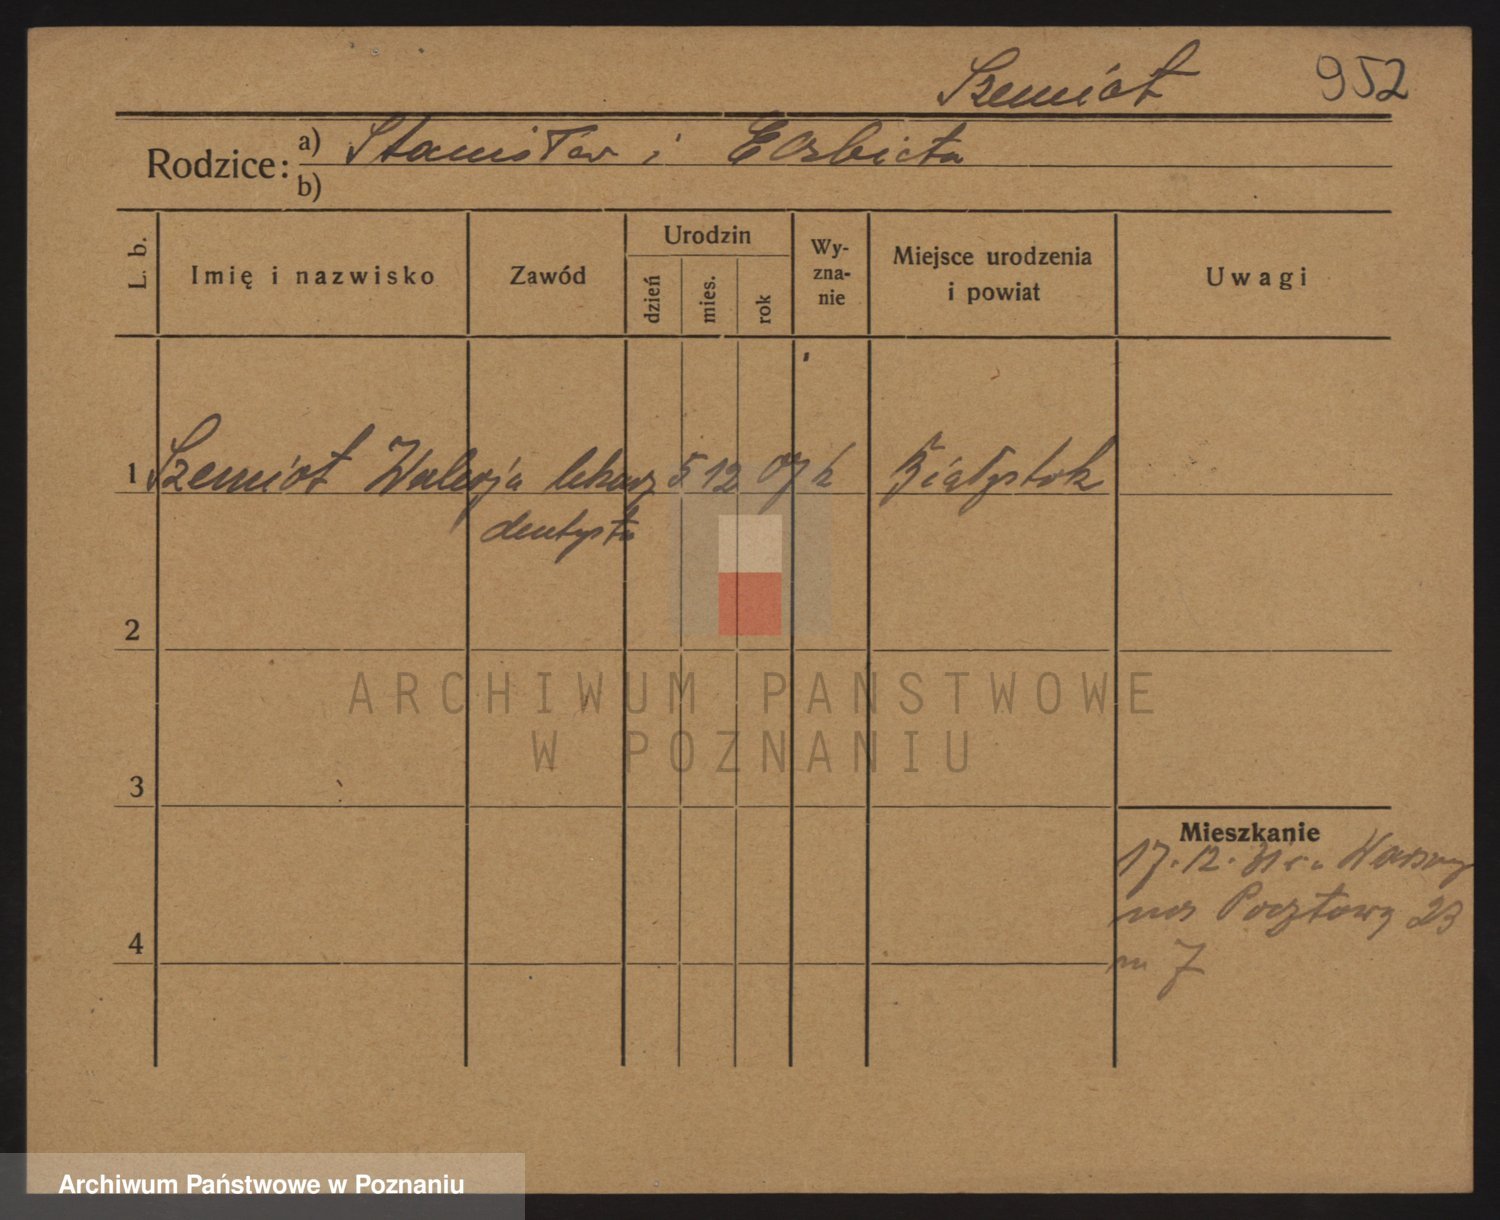 Szemiot 952
Rodzice: a) Stanisław i Elżbieta
b)
L. b.
Imię i nazwisko
Zawód
Urodzin
dzień
mies.
rok
Wy-
zna-
nie
Miejsce urodzenia
i powiat
Uwagi
1 Szemiot Walerja lekarz 5 12 07 k Białystok
dentysta
2
3
4
Mieszkanie
17.12.31 r.
Pocztowa 23
m 7
ARCHIWUM PAŃSTWOWE
W POZNANIU
Archiwum Państwowe w Poznaniu